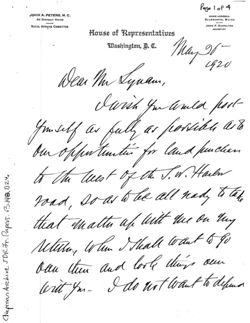 Page 1 of 4
JOHN A. PETERS, M. C.
House of Representatives
Washington, D. C.
May 25-
1920
Dear Mr Lynam,
I wish you would post
yourself as fully as possible as to
our opportunities for land purchase
to the West of the S. W. Harbor
road, so as to be all ready to take
that matter up with me on my
return, when I shall want to go
over there and look things over
with you - I do not want to depend
Chapman Archive